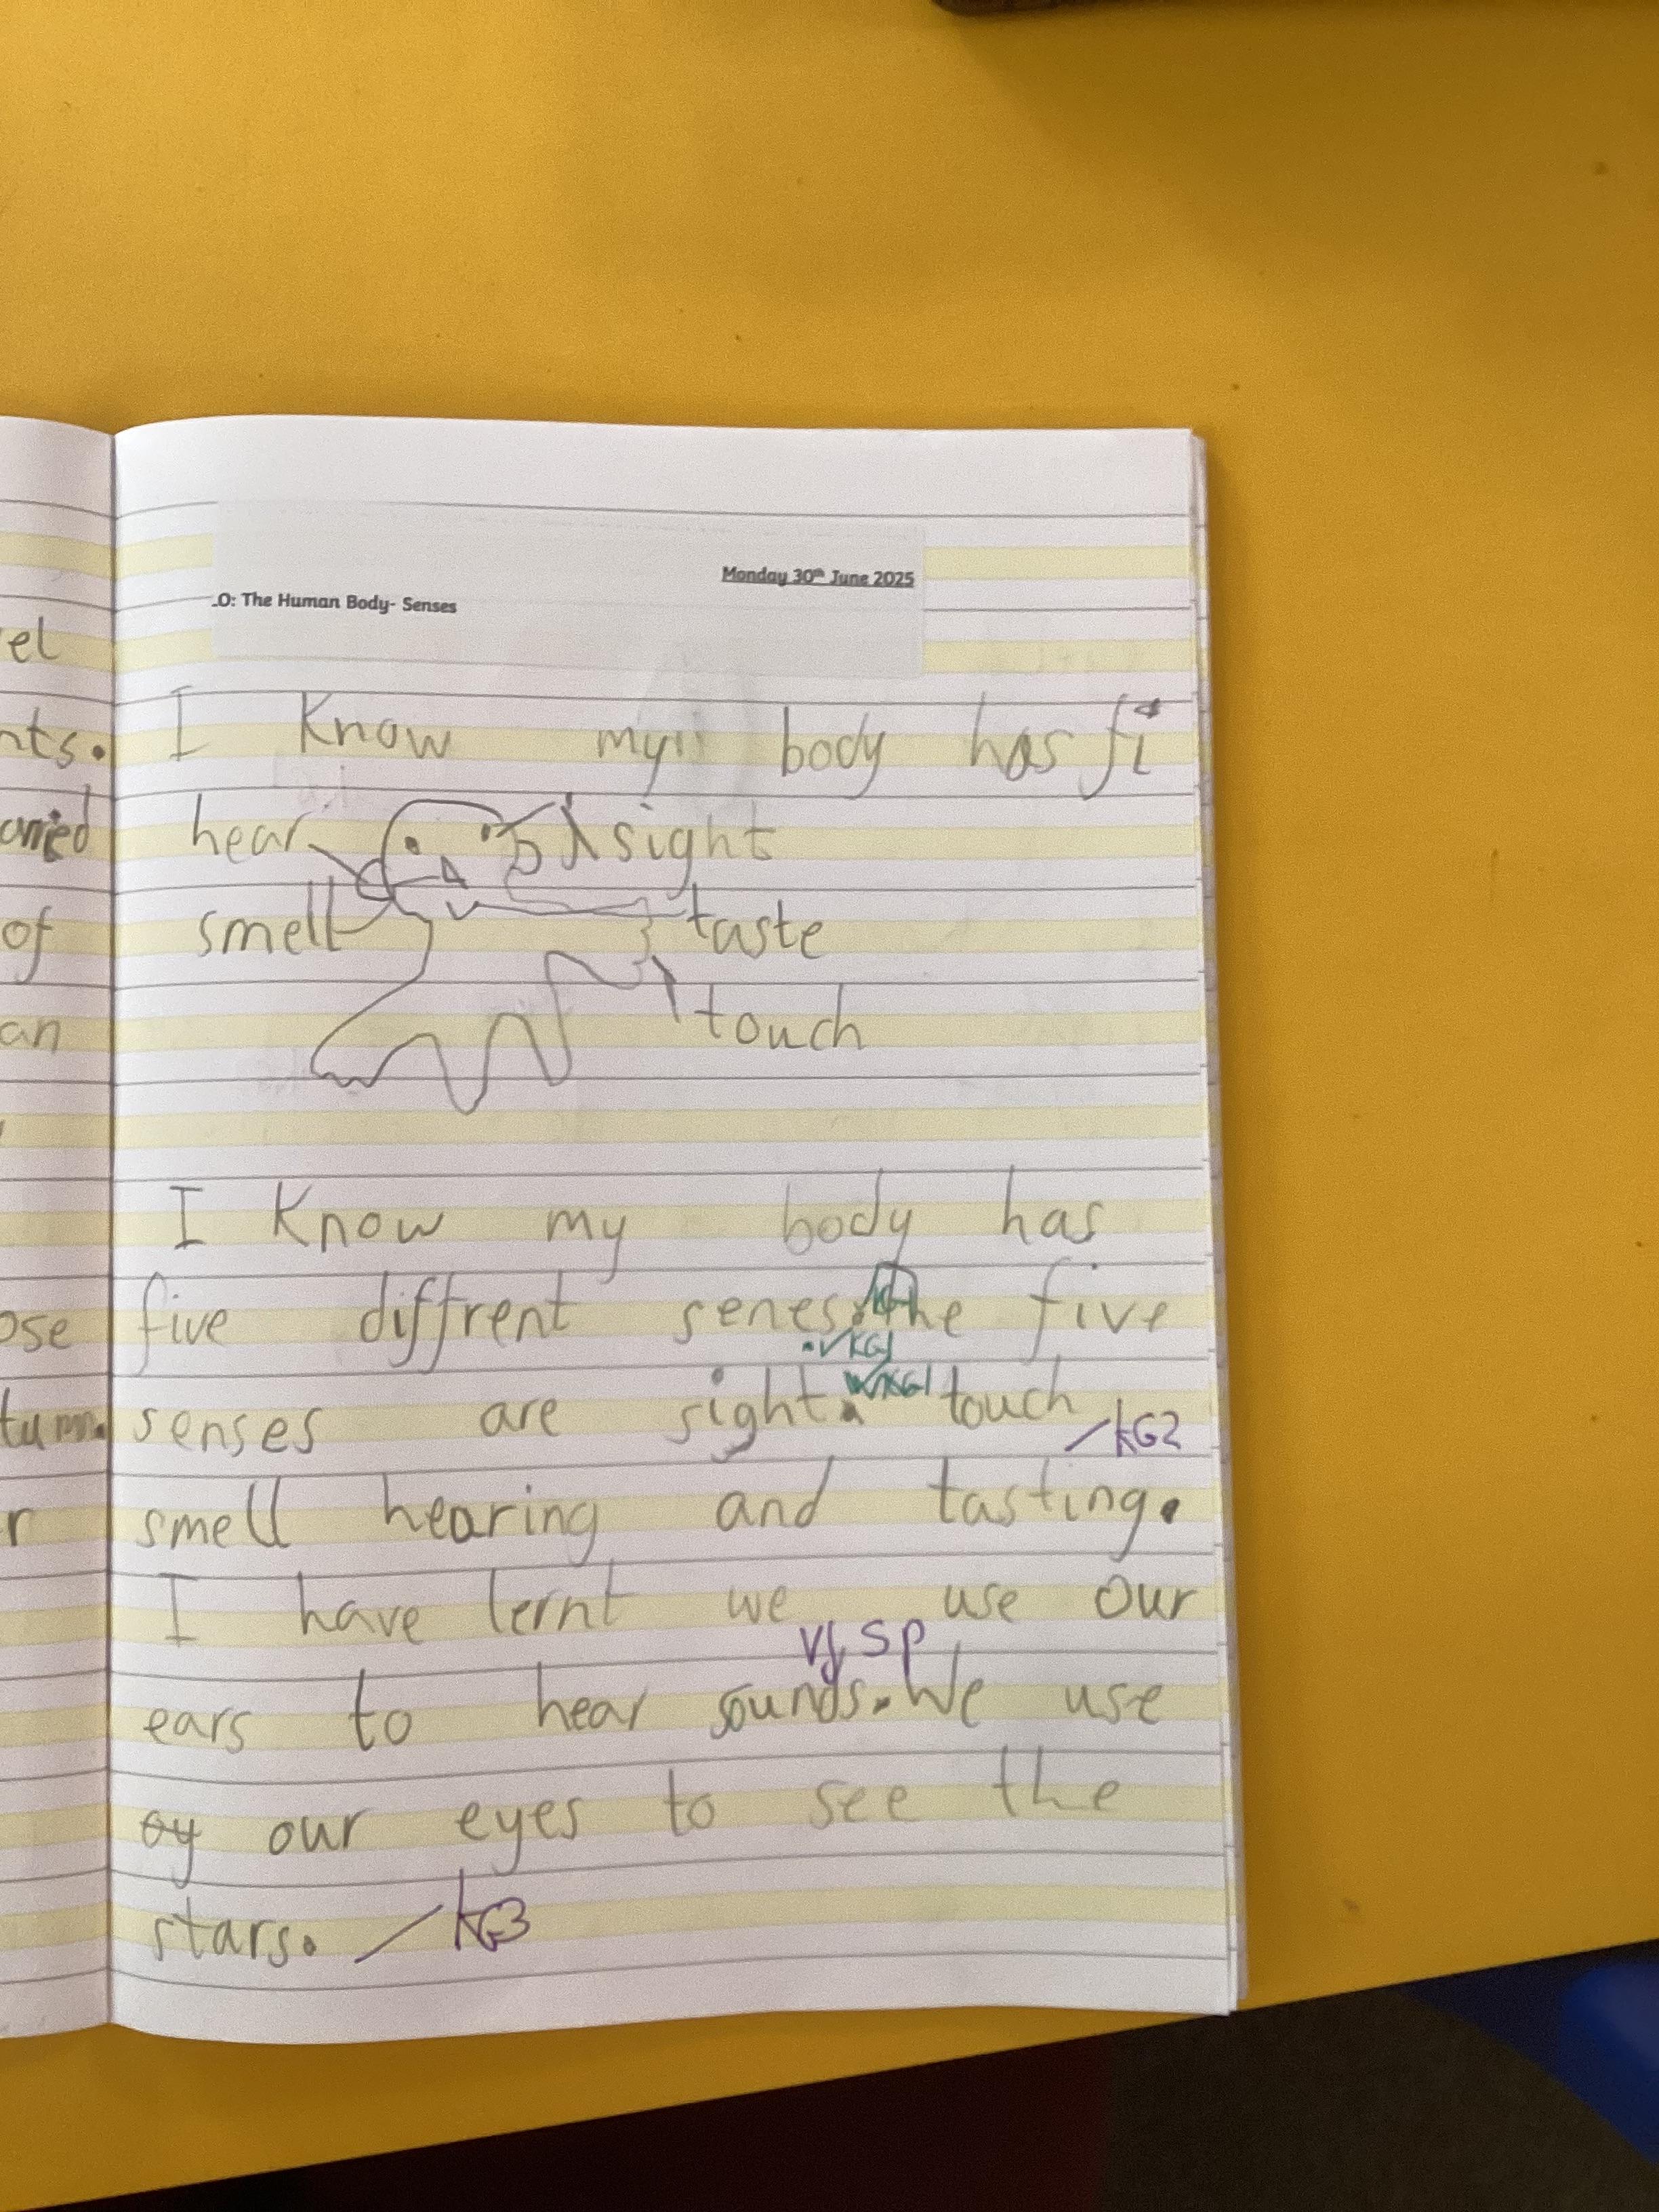 Monday 30th June 2025
.O: The Human Body- Senses
el
nts.
of
an
ose
r
I Know my body has fi
hear sight
smell taste
touch
I Know my body has
five diffrent senes. the five
. ✓KG1
senses are sight. touch
KG1
/ KG2
smell hearing and tasting.
I have lernt we use our
Vf SP
ears to hear sounds. We use
oy our eyes to see the
stars. / KG3